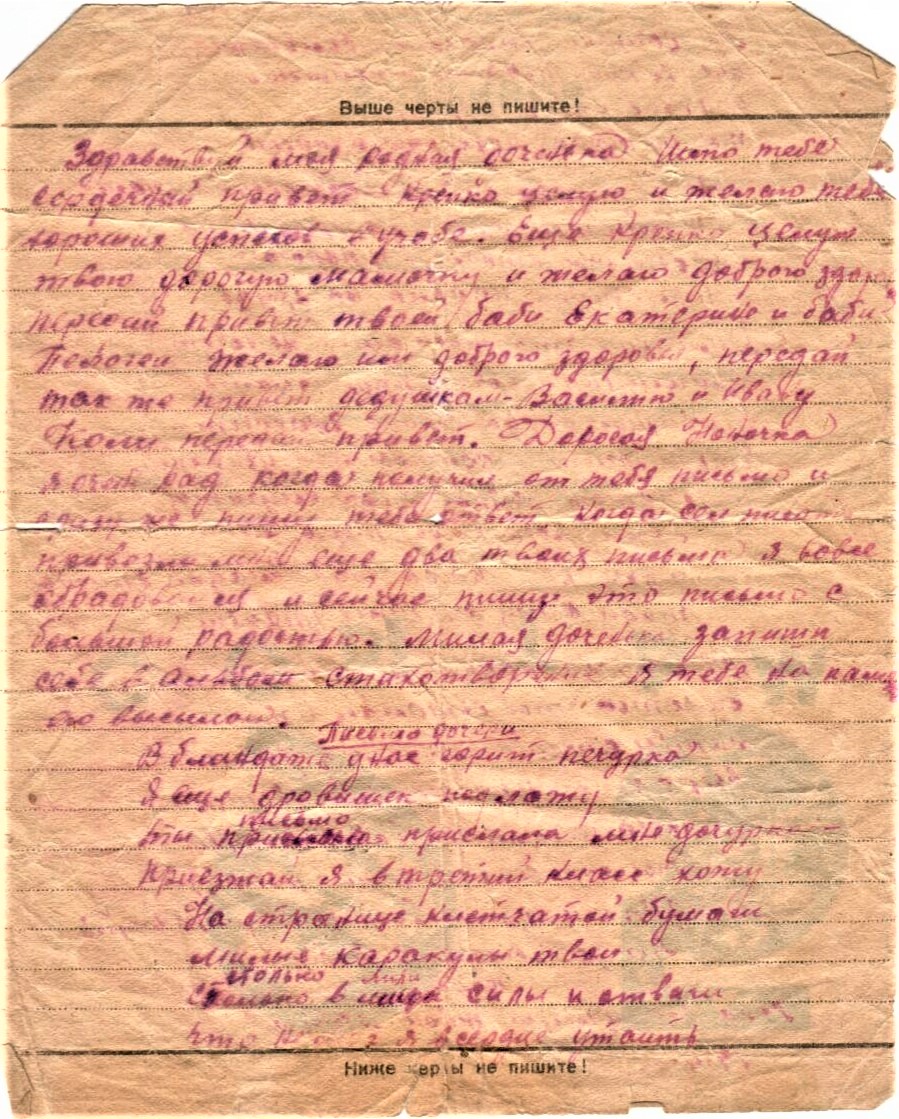 Выше черты не пишите!
Здравствуй моя родная доченька Шлю тебе
сердечный привет крепко целую и желаю тебе
хороших успехов в учобе. Еще крепко целую
твою дорогую мамочку и желаю доброго здоро
передай привет твоей баби Екатерине и баби
Пелагеи желаю им доброго здоровья, передай
так же привет дедушкам Василию и Ивану
Коли передай привет. Дорогая
я очень рад когда получил от тебя письмо и
сразу же пишу тебе ответ когда сел писать
привезли мне еще два твоих письма я вовсе
обрадовался и сейчас пишу это письмо с
большой радостью. Милая доченька запиши
себе в альбом стихотворение я тебе на память
его высылаю.
Письмо дочери
В блиндаже у нас горит печурка
Я еще дровишек положу
Ты письмо прислала мне дочурка
Приезжай я в третий класс хожу
На странице клетчатой бумаги
милые каракули твои
Столько в силы и отваги
Что я в сердце утаить
Ниже черты не пишите!